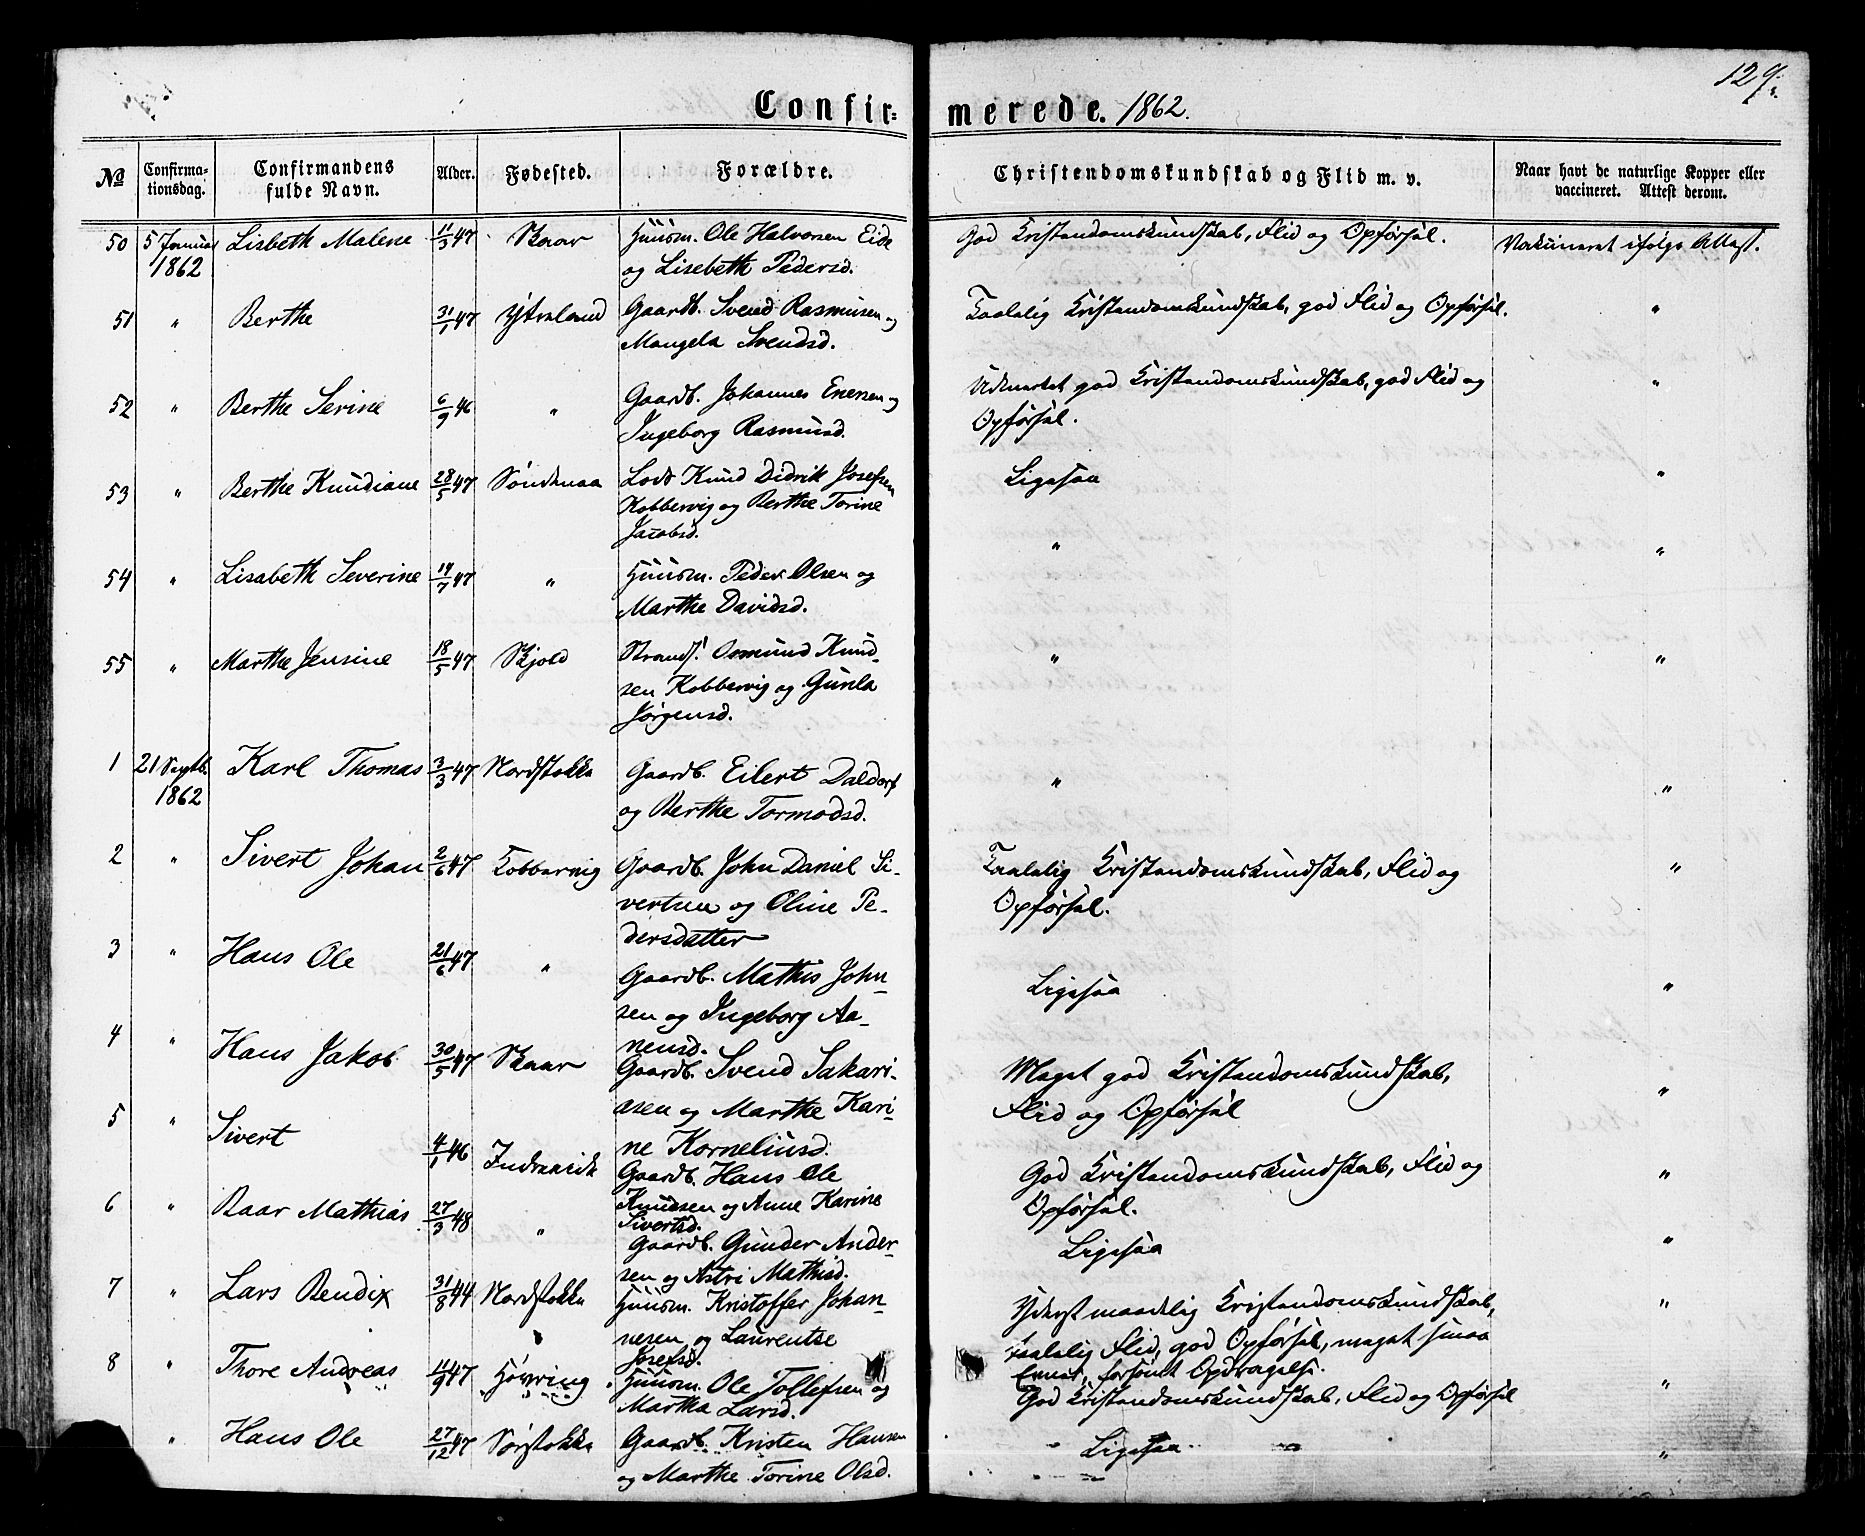 129.
Confir= merede. 1862.
No Confirma- tionsdag. Confirmandens fulde Navn. Alder. Fødested. Forældre. Christendomskundskab og Flid m. v. Naar havt de naturlige Kopper eller vaccineret. Attest derom.
50 5 Januar Lisbeth Malene 11/3 47 Skaar Huusm. Ole Halvorsen Eide God Kristendomskundskab, Flid og Opførsel. Vakcineret ifølge Attest.
1862 og Lisebeth Pedersd.
51 " Berthe 31/1 47 Ytreland Gaardb. Svend Rasmusen og Taalelig Kristendomskundskab, god Flid og Opførsel. "
Mangela Svendsd.
52 " Berthe Serine 6/9 46 " Gaardb. Johannes Enersen og Udmærket god Kristendomskundskab, god Flid og "
Ingeborg Rasmusd. Opførsel.
53 " Berthe Knudiane 28/5 47 Søndenaa Lods Knud Didrik Josefsen Ligesaa "
Kobbervig og Berthe Torine
Jacobsd.
54 " Lisabeth Severine 14/7 47 " Huusm. Peder Olsen og " "
Marthe Davidsd.
55 " Marthe Jensine 18/5 47 Skjold Strands. Osmund Knud- " "
sen Kobbervig og Gunla
Jørgensd.
1 21 Septb. Karl Thomas 3/3 47 Nordstokke Gaardb. Eilert Daldorf " "
1862 og Berthe Tormodsd.
2 " Sivert Johan 2/6 47 Kobbervig Gaardb. John Daniel Si- Taalelig Kristendomskundskab, Flid og "
vertsen og Oline Pe- Opførsel.
dersdatter
3 " Hans Ole 21/6 47 " Gaardb. Mathis John- Ligesaa "
sen og Ingeborg Aa-
nensd.
4 " Hans Jakob 30/5 47 Skaar Gaardb. Svend Sakari- Meget god Kristendomskundskab, "
asen og Marthe Kari- Flid og Opførsel
ne Korneliusd.
5 " Sivert 4/1 46 Indrevik Gaardb. Hans Ole God Kristendomskundskab, Flid og "
Knudsen og Anne Karine Opførsel.
Sivertsd.
6 " Baar Mathias 27/3 48 " Gaardb. Gunder Ander- Ligesaa "
sen og Astri Mathisd.
7 " Lars Bendix 31/8 44 Nordstokke Huusm. Kristoffer Johan- Yderst maadelig Kristendomskundskab, "
nesen og Laurentse taalelig Flid, god Opførsel, meget smaa
Josefsd. Evner, forsømt Opdragelse.
8 " Thore Andreas 11/9 47 Høvring Huusm. Ole Tollefsen og God Kristendomskundskab, Flid og Opførsel "
Martha Larsd.
" Hans Ole 27/12 47 Sørstokke Gaardb. Kristen Hansen Ligesaa "
og Marthe Torine Olsd.